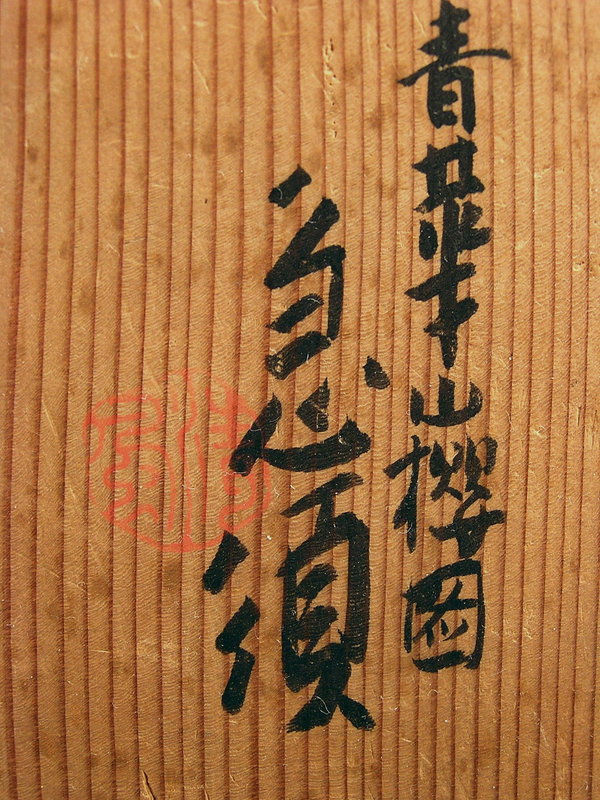 青華山櫻圖
急須